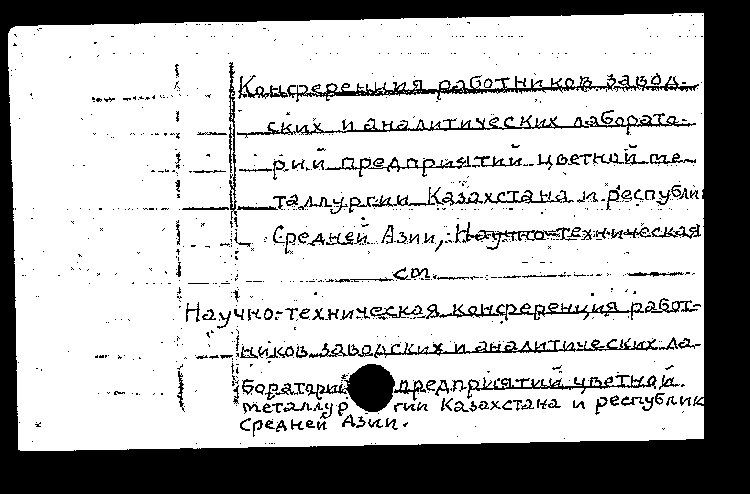 Конференция работников завод-
ских и аналитических лаборато-
рий предприятий цветной ме-
таллургии Казахстана и республи
Средней Азии, Научно-техническая
см.
Научно-техническая конференция работ-
ников заводских и аналитических ла-
боратори предприятий цветной
металлургии Казахстана и республик
Средней Азии.